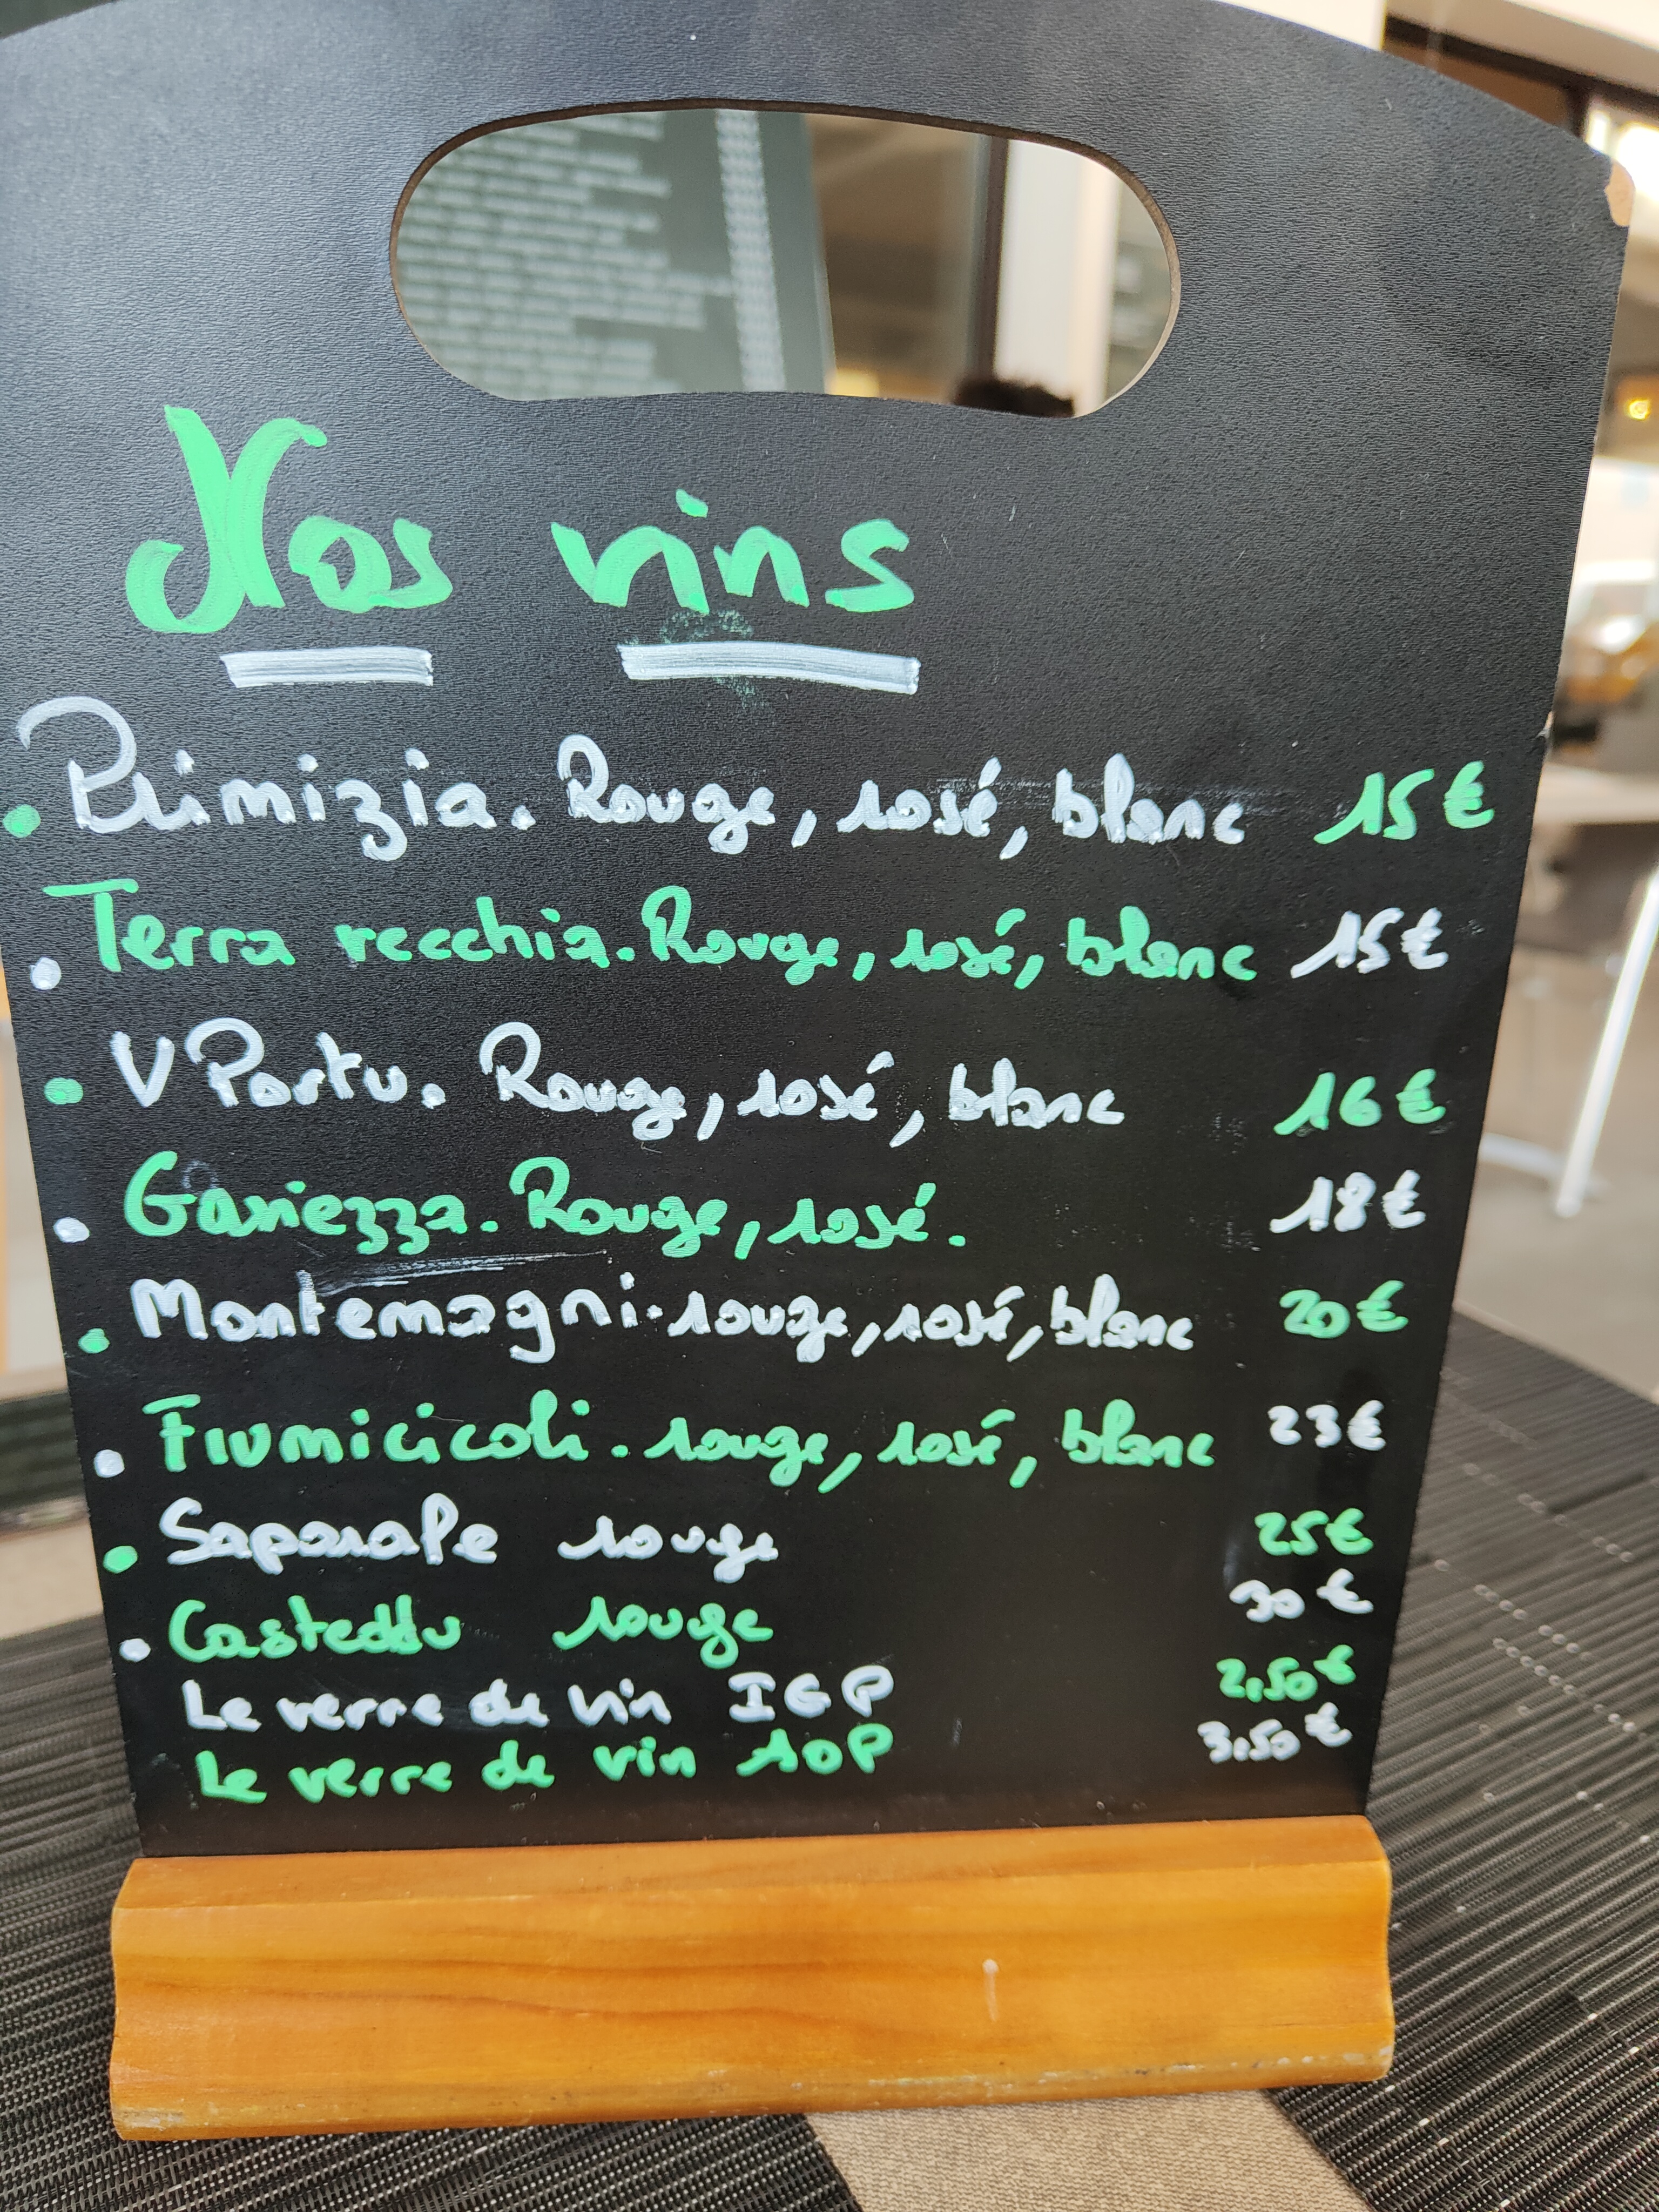 Nos vins
Primizia. Rouge, rosé, blanc 15€
Terra vecchia. Rouge, rosé, blanc 15€
V Portu. Rouge, rosé, blanc 16€
Gaviezza. Rouge, rosé. 18€
Montemagni. rouge, rosé, blanc 20€
Fiumicicoli. rouge, rosé, blanc 23€
Saparale rouge 25€
Casteddu rouge 30€
Le verre de vin IGP 2,50€
Le verre de vin AOP 3,50€